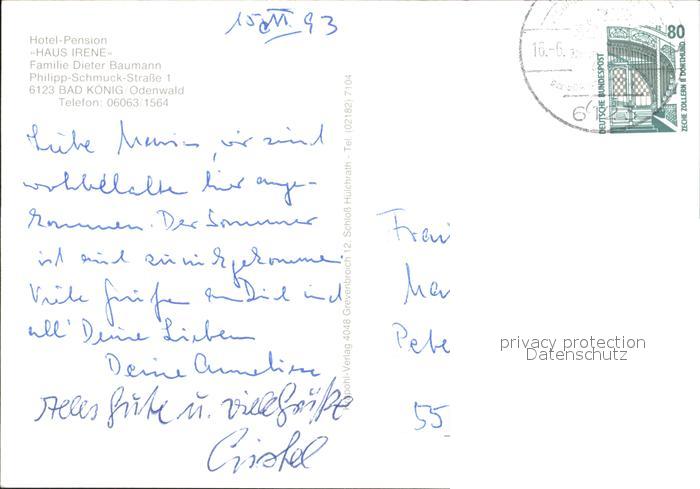 15.VI.93
Hotel-Pension
»HAUS IRENE«
Familie Dieter Baumann
Philipp-Schmuck-Straße 1
6123 BAD KÖNIG/Odenwald
Telefon: 06063/1564
Liebe wir sind
wohlbehalten hier ange-
kommen. Der Sommer
ist auch zurückgekommen
Viele Grüße an Dich und
all' Deine Lieben
Deine Anneliese
Alles Gute u. viele Grüße
Cristel
-Verlag 4048 Grevenbroich 12, Schloß Hülchrath - Tel. (02182) 7104
16.-6.
6123
80
DEUTSCHE BUNDESPOST
ZECHE ZOLLERN II DORTMUND
Frau
Mar
Pete
55
privacy protection
Datenschutz